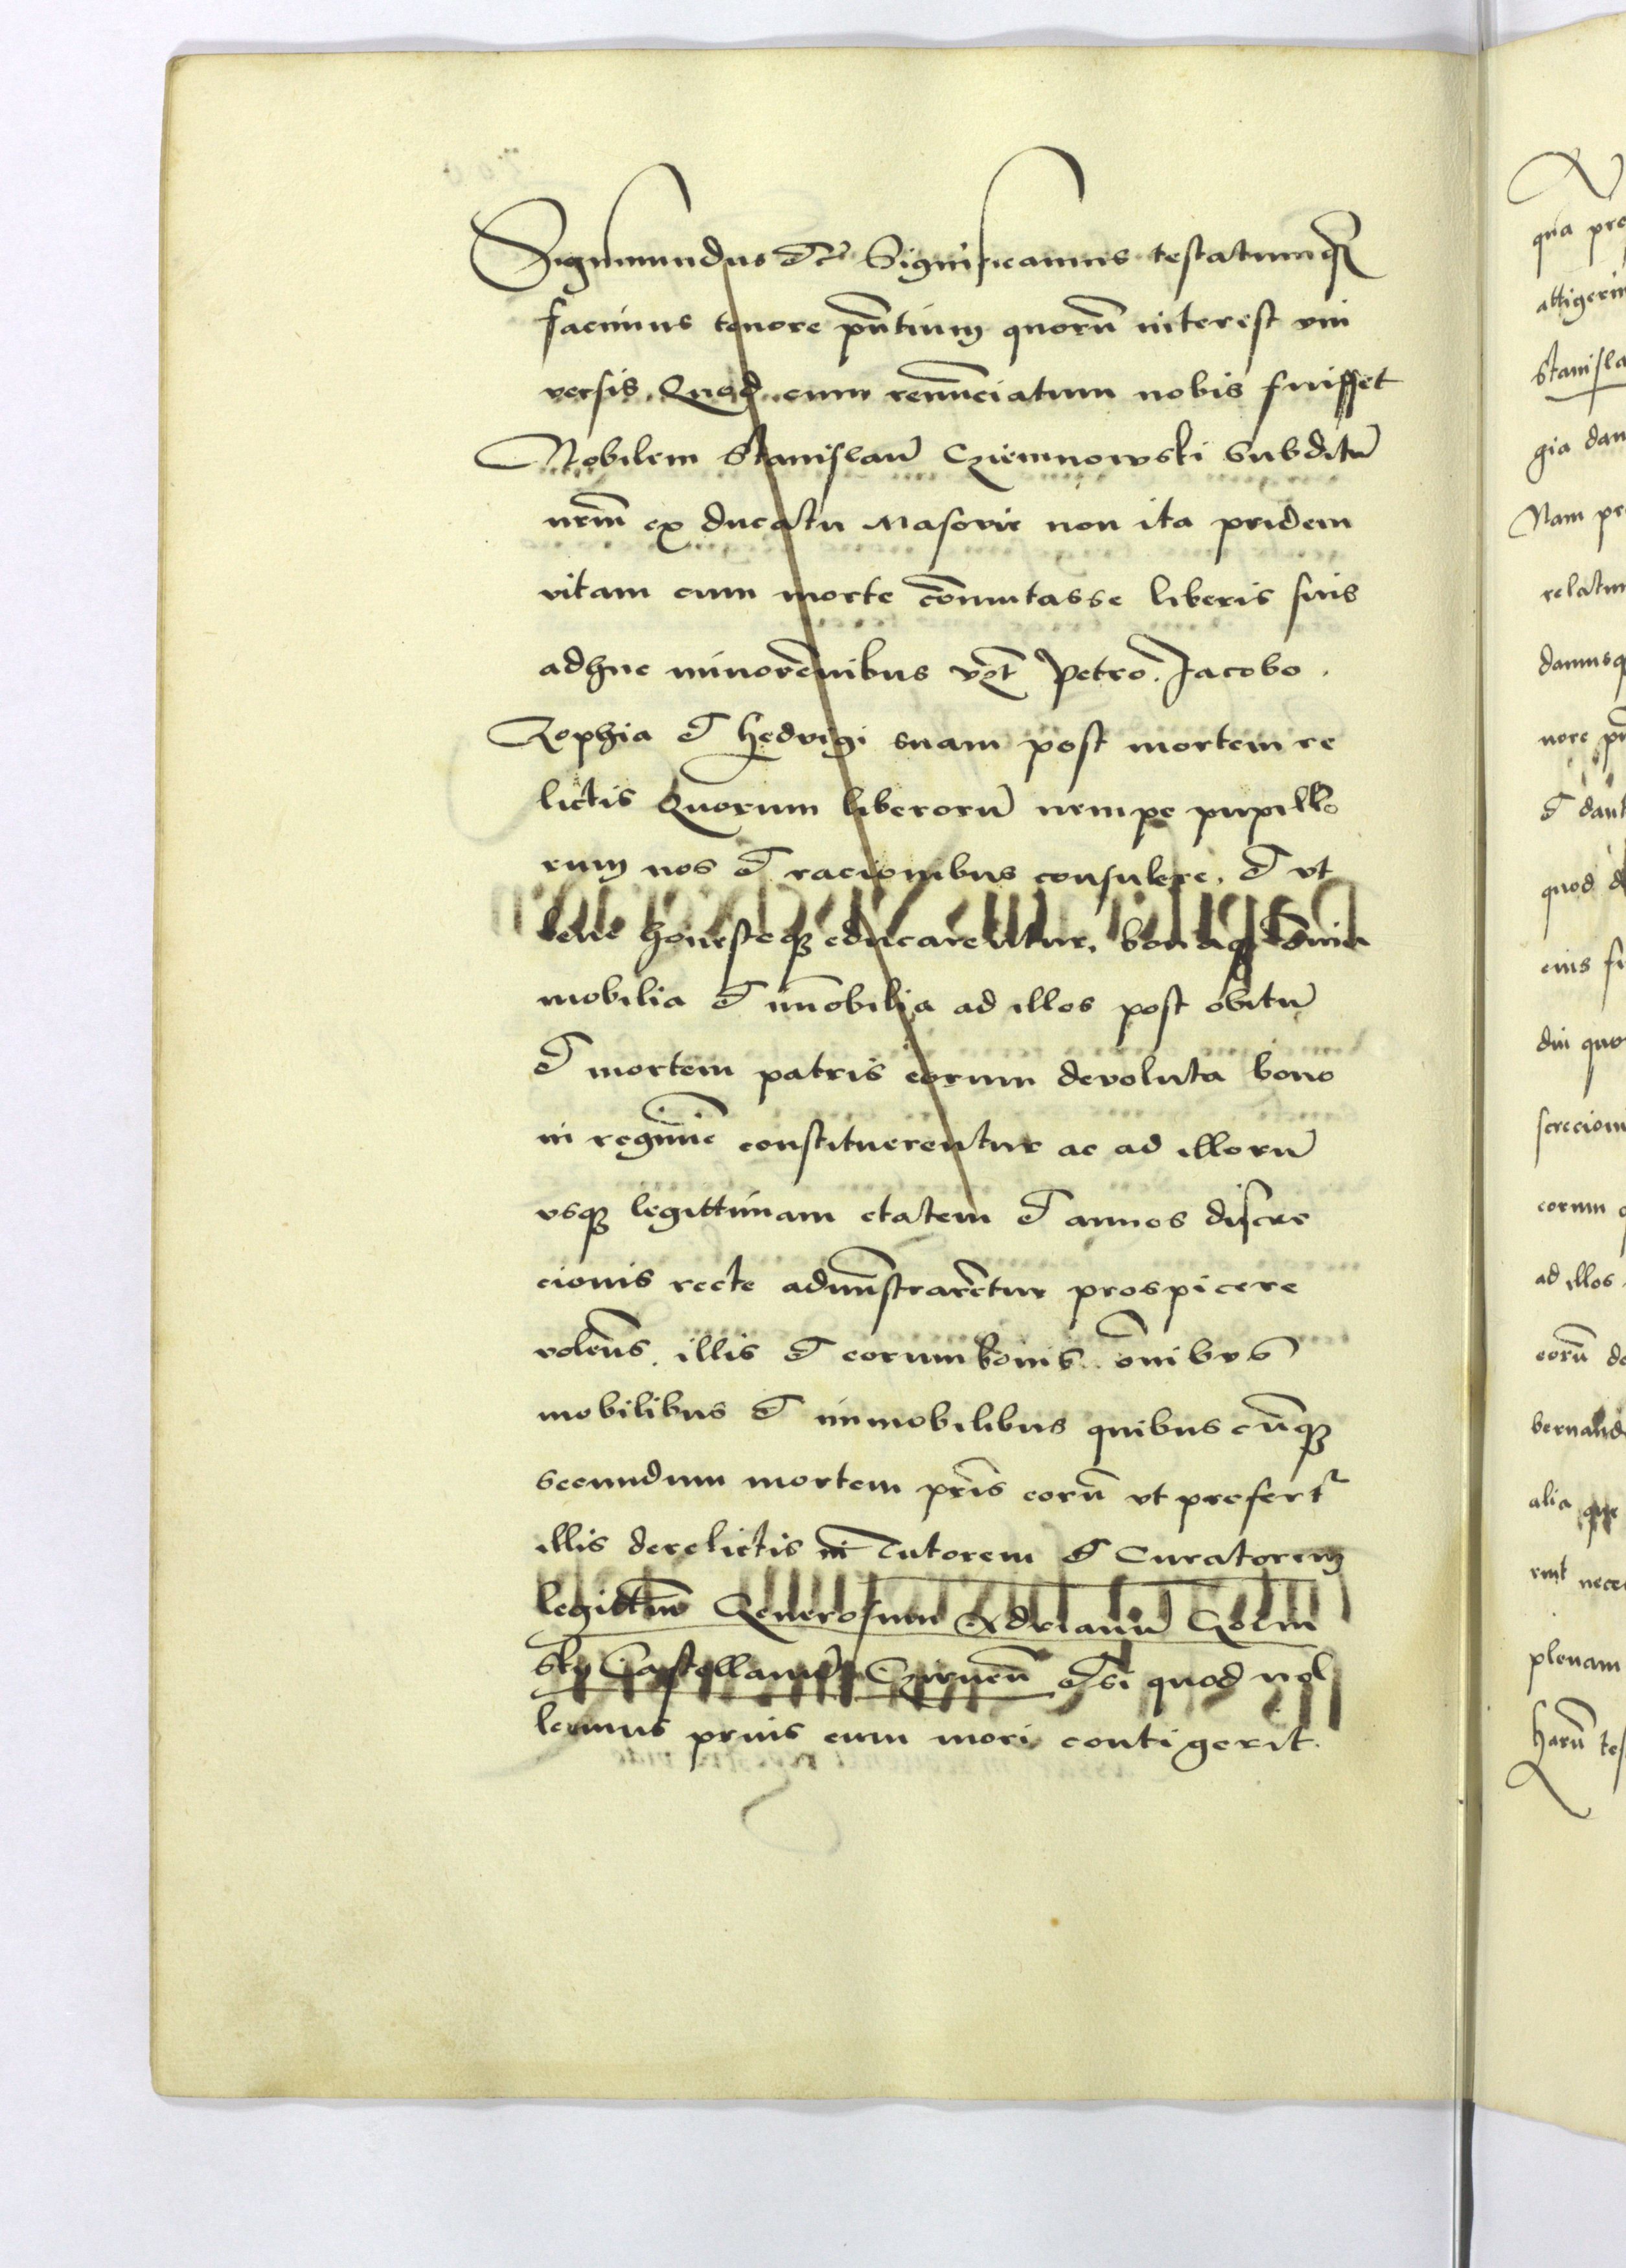 Sigismundus etc̃ Significamus testatumq₃
facimus tenore pñtium quorũ interest vni
versis. Quod cum renũciatum nobis fuisset
Nobilem Stanislaũ Cziemnowski Subditũ
nrm̃ ex ducatu Masovie non ita pridem
vitam cum morte cõmutasse liberis suis
adhuc minorẽnibus vꝫt Petro. Jacobo.
Zophia et Hedvigi suam post mortem re
lictis Quorum liberorũ nempe pupillo
rum nos et racionibus consulere. et vt
bene honesteq₃ educarentur. bonaq₃ õmia
mobilia et im̃obilia ad illos post obitũ
et mortem patris eorum devoluta bono
in regimĩe constituerentur ac ad illorũ
vsq₃ legittimam etatem et annos discre
cionis recte admĩstrarẽtur prospicere
volẽns. illis et eorum bonis. õmibus
mobilibus et immobilibus quibuscũq₃
secundum mortem pris̃ eorũ vt prefert᷑
illis derelictis in Tutorem et Curatorem
legittim̃ Generosum Adrianũ
sky Castellanũ et si quod nol
lemus prius eum mori contigerit.
qua pro
Stanisla
gia dan
Nam pr
relatum
damusq
nore pñ
et dant
quod
eius fu
diu quo
screcion
eorum
ad illos
eorũ de
bernand
alia que
rint nece
plenam
Harũ tes